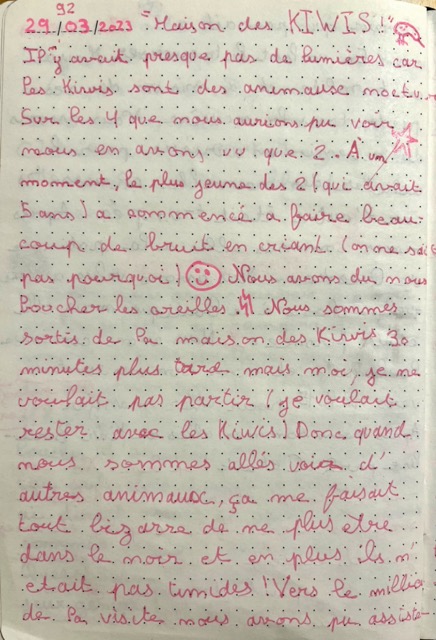 92
29/03/2023 "Maison des KIWIS!"
IP y avait presque pas de lumières car
Les Kiwis sont des animause noctur
Sur les 4 que nous aurions pu voir
nous en avons vu que 2. À un
moment, le plus jeune des 2 (qui avait
5 ans) a acommencé a faire beau-
coup de bruit en criant (on ne sait
pas pourquoi) Nous avons du nous
boucher les oreilles Nous sommes
sortis de la maison des Kiwis 30
minutes plus tard mais moi, je ne
voulait pas partir (je voulait
rester avec les Kiwis) Donc quand
nous sommes allés voir d'
autres animause, ça me faisait
tout bizarre de ne plus etre
dans le noir et en plus ils m'
etait pas timides! Vers le millieu
de la visite nous avons pu assiste